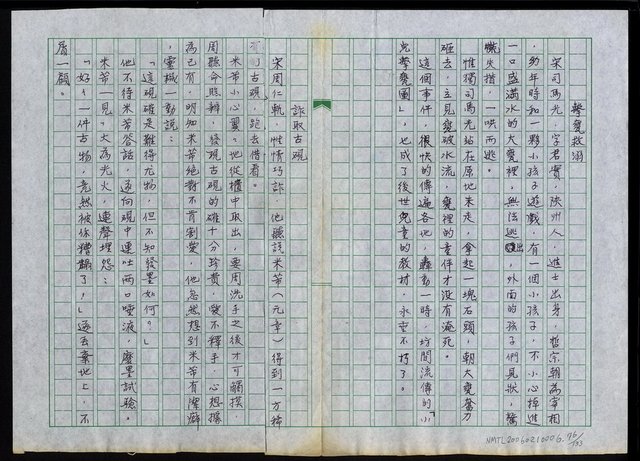 擊甕救溺
宋司馬光，字君實，陝州人，進士出身，哲宗朝為宰相
，幼年時和一夥小孩子遊戲，有一個小孩子，不小心掉進
一口盛滿水的大甕裡，無法逃出，外面的孩子們見狀，驚
慌失措，一哄而逃。
惟獨司馬光站在原地未走，拿起一塊石頭，朝大甕奮力
砸去，立見甕破水流，甕裡的童伴才沒有淹死。
這個事件，很快的傳遍各地，轟動一時，坊間流傳的「小
兒擊甕圖」，也成了後世兒童的教材，永垂不朽了。
詐取古硯
宋周仁軌，性情巧詐，他聽説米芾（元章）得到一方稀
有古硯，跑去借看。
米芾小心翼翼地從櫃中取出，要周洗手之後才可觸摸，
周縣命照辦，發現古硯的確十分珍貴，愛不釋手，心想據
為己有，明知米芾絕對不肯割愛，他忽然想到米芾有潔癖
，靈機一動説：
「這硯確是難得尤物，但不知發墨如何？」
他不待米芾答話，逕向硯中連吐兩口唾液，磨墨試驗。
米芾一見，大為光火，連聲埋怨：
「好好一件古物，竟然被你糟蹋了！」逕丟棄地上，不
屑一顧。
NMTL2006021000G 76/133